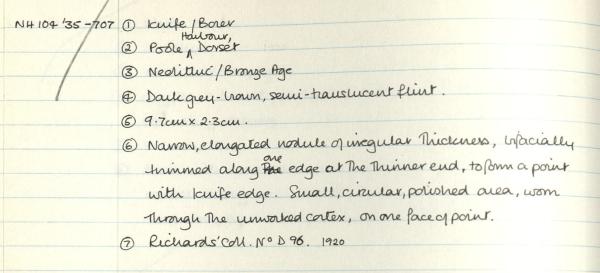 NH 104 '35 - 707 ① Knife / Borer
② Poole Harbour, Dorset
③ Neolithic / Bronze Age
④ Dark grey-brown, semi-translucent flint.
⑤ 9.7cm x 2.3cm.
⑥ Narrow, elongated nodule of irregular thickness, bifacially
trimmed along one edge at the thinner end, to form a point
with knife edge. Small, circular, polished area, worn
through the unworked cortex, on one face of point.
⑦ Richards' Coll. Nº D 96. 1920